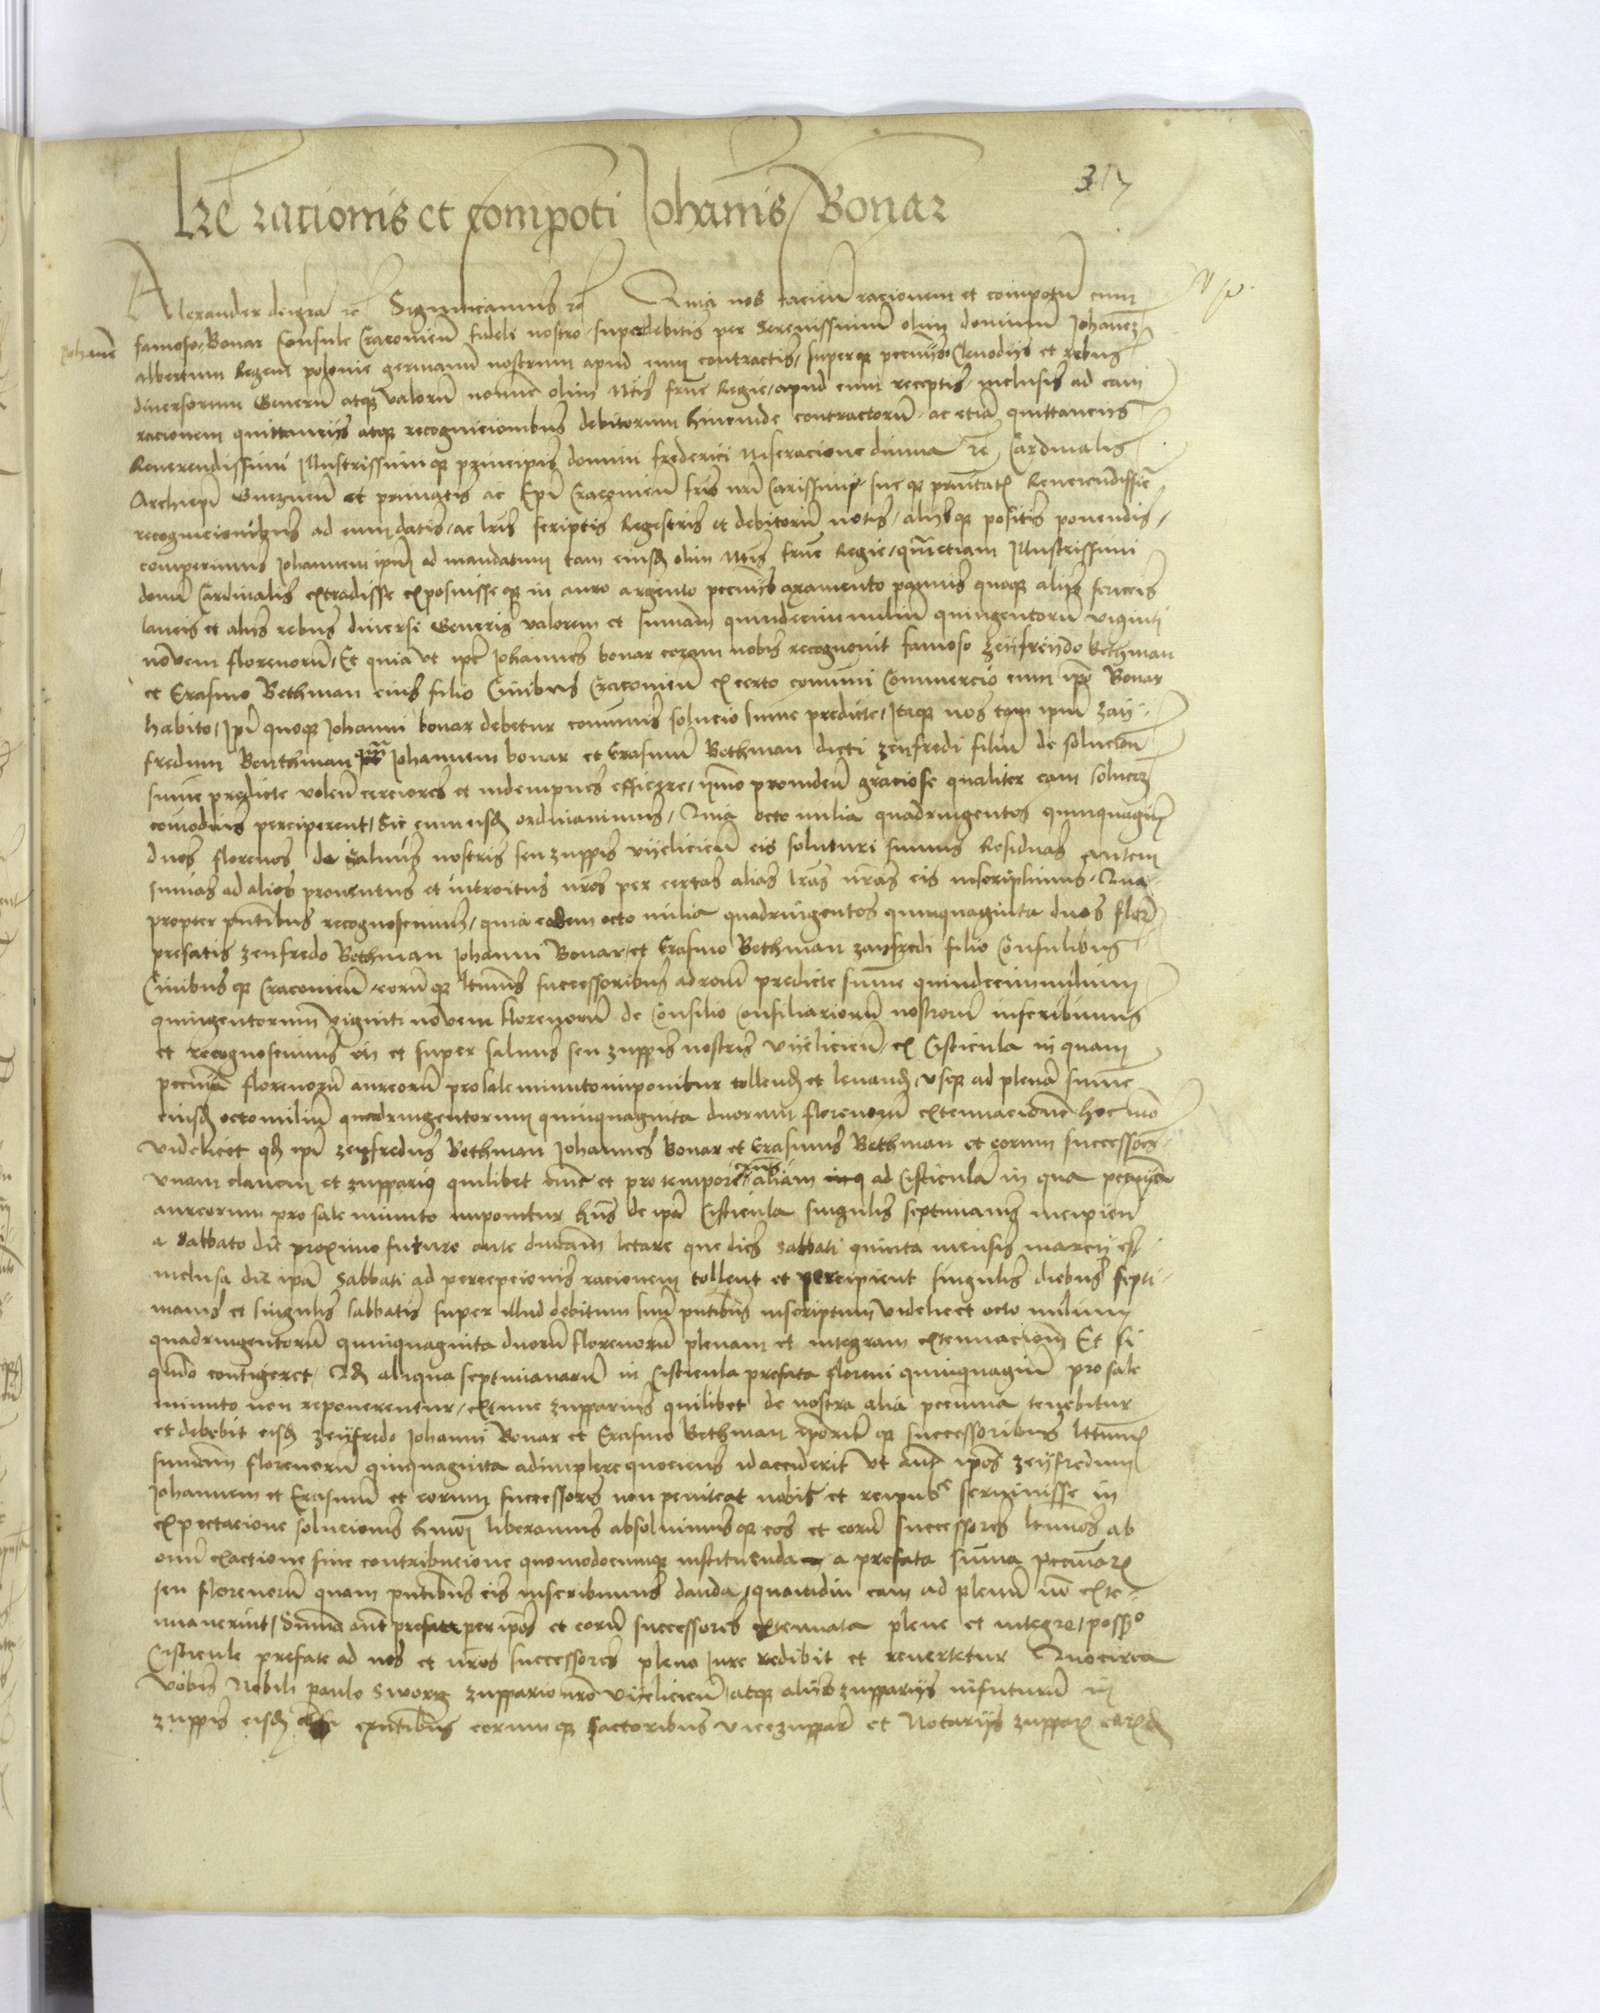 317
Lre racionis et compoti Johannis Bonar
Alexander dei gra rc Significamus rc Quia nos facien racionem et compotum cum
Johanne famoso Bonar Consule Cracovien fideli nostro super debitis per Serenissimum olim dominum Johanem
albertum Regem polonie germanum nostrum apud eum contractis, superque pecuniis Clenodiis et rebus
diversorum Generum atque valorum nomine olim Mtis frne Regie apud eum receptis, inclusis ad eam
racionem quittanciis atque recognicionibus debitorum hincinde contractorum, ac etiam quittanciis
Reverendissimi Illustrissimique principis domini frederici Miseracione divina rc Cardinalis
Archiepi Gneznen et primatis ac Epi Cracovien fris nri Carissimi
recognicionibus ad eum datis, ac lris scriptis Regestris et debitorum notis, aliisque positis ponendis,
comperimus Johannem ipum ad mandatum tam eiusdem olim Mtis frne Regie, quam etiam Illustrissimi
domini Cardinalis extradisse exposuisseque in auro argento pecuniis axamento pannis quoque aliis sericeis
laneis et aliis rebus diversi Generis valorem et summam quindecim milium quingentorum viginti
novem florenorum, Et quia ut ipse Johannes bonar coram nobis recognovit famoso Zeifreydo Bethman
et Erasmo Bethman eius filio Civibus Cracovien ex certo comuni Commercio cum ipo Bonar
habito, Ipi quoque Johanni bonar debetur comunis solucio sume predicte, Itaque nos tam ipum Zay-
fredum Benthman Johannem bonar et Erasmum Bethman dicti Zeifredi filium de solucione
sume predicte volen cerciores et indempnes efficere, ymo providen graciose qualiter eam solucionem
comodius perciperent, Sic cum eisdem ordinavimus, Quia octo milia quadringentos quinquaginta
duos florenos de salinis nostris seu zuppis vyelicien eis soluturi sumus Residuas autem
sumas ad alios proventus et introitus nros per certas alias lras nras eis inscripsimus, Qua-
propter pntibus recognoscimus, quia eadem octo milia quadringentos quinquaginta duos flor
prefatis Zenfredo Bethman Johanni Bonar et Erasmo Bethman Zayfredi filio Consulibus
Civibusque Cracovien, eorumque ltimis successoribus ad ronem predicte sume quindecim milium
quingentorum viginti novem florenorum de Consilio Consiliariorum nostrorum inscribimus
et recognoscimus in et super salinis seu zuppis nostris Vyelicien, ex Cisticula in quam
pecunia florenorum aureorum pro sale minuto imponitur tollend et levand, usque ad plenam sume
eiusdem octo milium quadringentorum quinquaginta duorum florenorum extenuacionem hoc modo
videlicet quod ipi Zeyfredus Bethman Johannes Bonar et Erasmus Bethman et eorum successores
unam clavem et zupparius quilibet
pro tempore aliam ad Cisticulam in qua pecunia
aureorum pro sale minuto imponitur de ipa Cisticula singulis septimanis incipien
a Sabbato die proximo futuro ante dnicam letare que dies Sabbati quinta mensis marcii est
inclusa die ipa Sabbati ad percepcionis racionem tollent et percipient singulis diebus septi-
manis et singulis sabbatis super illud debitum suum pntibus inscriptum videlicet octo milium
quadringentorum quinquaginta duorum florenorum plenam et integram extenuacionem Et si
quando contigeret, Quod aliqua septimanarum in Cisticula prefata floreni quinquaginta pro sale
minuto non reponerentur, extunc zupparius quilibet de nostra alia pecunia tenebitur
et debebit eisdem Zeyfredo Johanni Bonar et Erasmo Bethman successoribus ltimis
sumam florenorum quinquaginta adimplere quociens id acciderit Ut aut ipos Zeyfredum
Johannem et Erasmum et eorum successores non peniteat nobis et reipub servivisse in
expectacione solucionis hmoi liberamus absolvimusque eos et eorum successores ltimos ab
omni exactione sive contribucione quomodocumque instituenda a prefata suma pecuniaria
seu florenorum quam pntibus eis inscribimus danda, quamdiu eam ad plenum non exte-
nuaverint, Suma aut prefata per ipos et eorum successores extenuata plene et integre, possessio
Cisticule prefate ad nos et nros successores pleno Iure redibit et revertetur Quocirca
vobis Nobili paulo Sworcz zuppario nro Vyelicien, atque aliis zuppariis infuturum in
zuppis eisdem exntibus eorumque factoribus vicezuppar et Notariis zupparum earundem